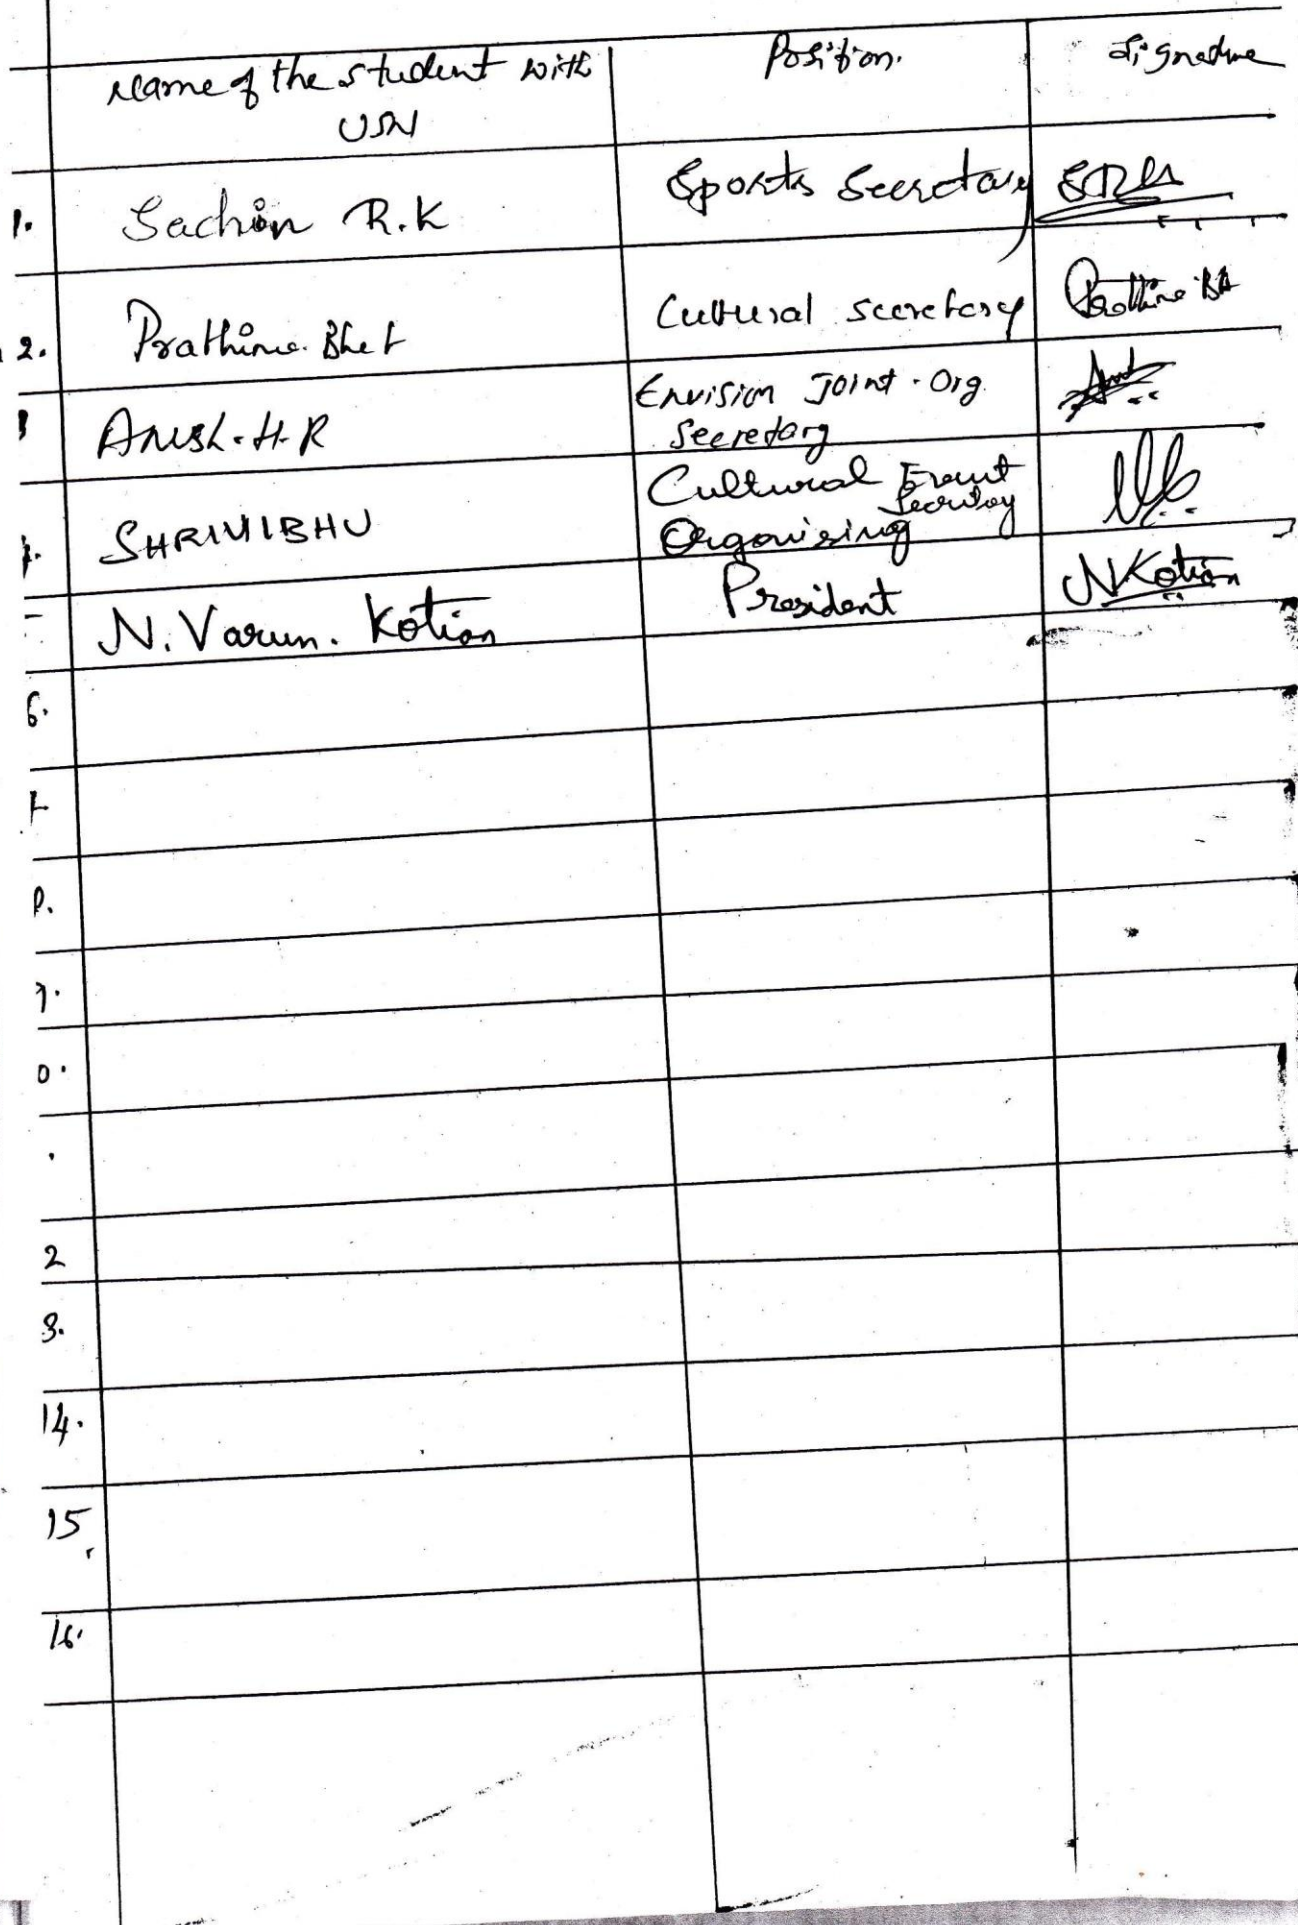 Name of the student with Position. Signature
USN
1. Sachin R.K Sports Secretary
2. Prathima Bhat Cultural secretary
Anish. H. R Envision Joint. Org
Secretary
SHRIVIBHU Cultural Event
Secretary
Organising
N. Varun. Kotian President NKotian
6.
14.
15
16.